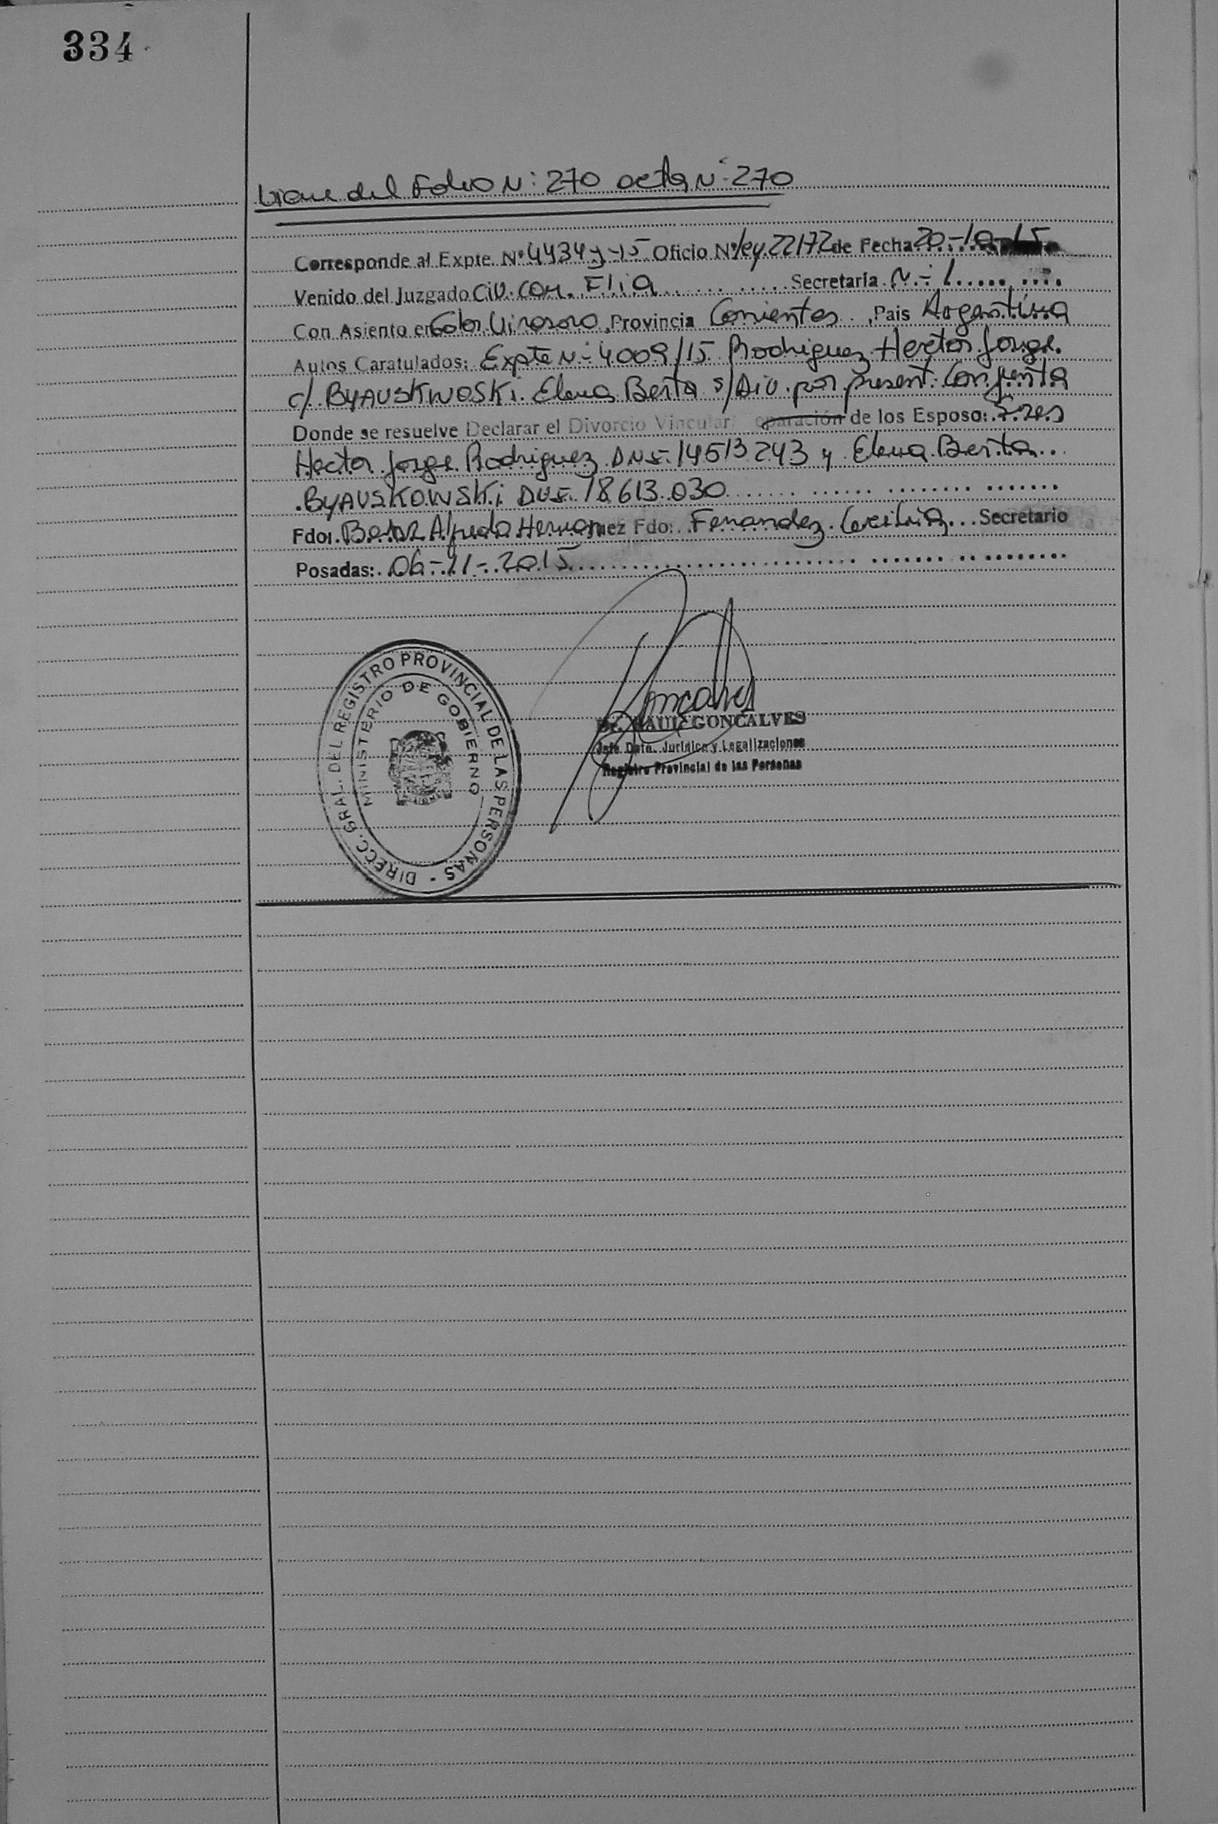 334
Viene del Folio N: 270 acta N: 270
Corresponde al Expte. Nº 4434-y-15 Oficio Nº ley 22172 de Fecha 20-10-15
Venido del Juzgado Civ. Com. Flia Secretaría N-1
Con Asiento en Gdor Virasoro Provincia Corrientes País Argentina
Autos Caratulados: Expte N- 4.009/15 Rodriguez Hector Jorge
c/ BYAUSKWOSKi Elena Berta s/Div. por present. Conjunta
Donde se resuelve Declarar el Divorcio Vincular de los Esposo: Sres
Hector Jorge Rodriguez DNI- 14613243 y Elena Berta
BYAUSKOWSKi DNI- 18613.030
Fdo: Alfredo Juez Fdo: Fernandez Cecilia Secretario
Posadas: 06-11-2015
DIRECC. GRAL. DEL REGISTRO PROVINCIAL DE LAS PERSONAS -
MINISTERIO DE GOBIERNO
Goncalves
Dr. RAUL GONCALVES
Jefe Dpto. Jurídico y Legalizaciones
Registro Provincial de las Personas